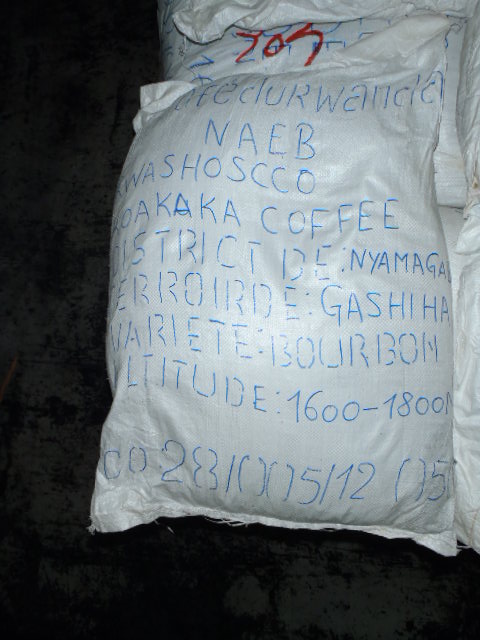 705
afeduRwanda
NAEB
KWASHOSCCO
KOAKAKA COFFEE
DISTRICT DE: NYAMAGA
TERROIRDE: GASHIHA
VARIETE: BOURBON
LTITUDE: 1600-1800M
CO 28/005/12 05